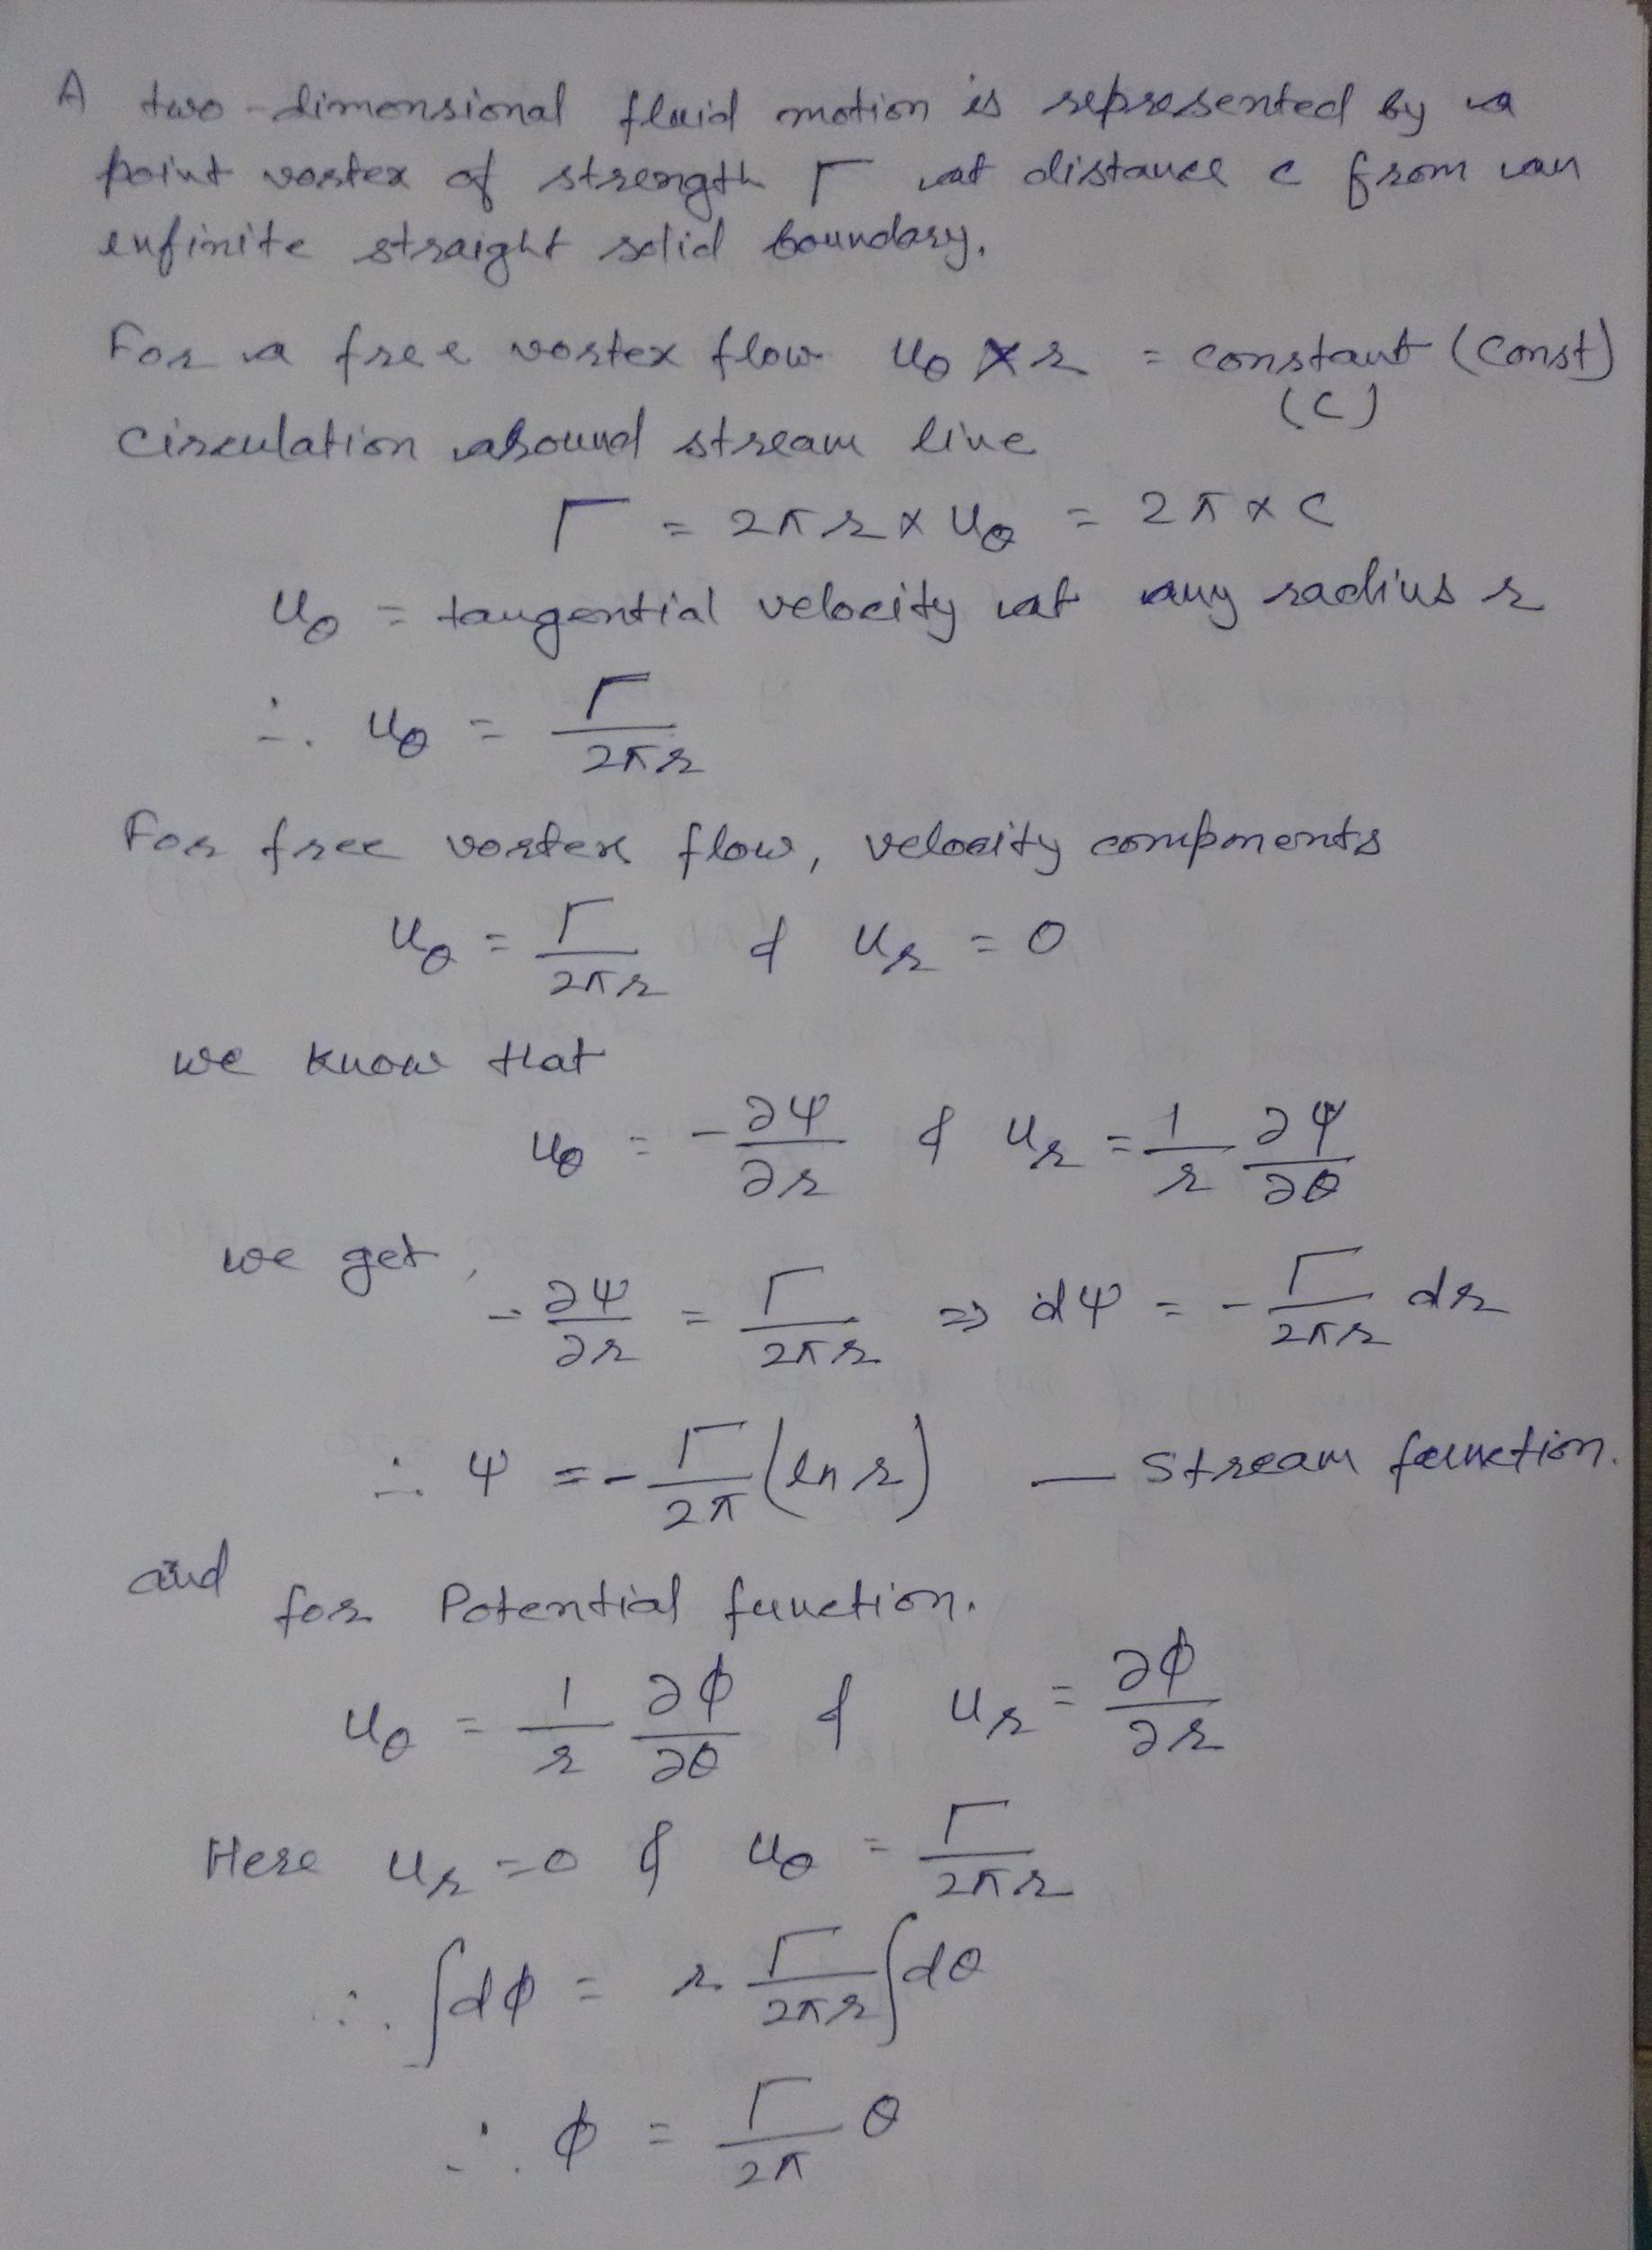 A two-dimensional fluid motion is represented by a
point vortex of strength Γ at distance c from an
infinite straight solid boundary.
For a free vortex flow u_θ × r = constant (const)
(C)
circulation around stream line
Γ = 2πr × u_θ = 2π × C
u_θ = tangential velocity at any radius r
∴ u_θ = Γ/2πr
For free vortex flow, velocity components
u_θ = Γ/2πr & u_r = 0
we know that
u_θ = -∂ψ/∂r & u_r = 1/r ∂ψ/∂θ
we get, -∂ψ/∂r = Γ/2πr ⇒ dψ = -Γ/2πr dr
∴ ψ = -Γ/2π (ln r) — Stream function.
and for Potential function.
u_θ = 1/r ∂ϕ/∂θ & u_r = ∂ϕ/∂r
Here u_r = 0 & u_θ = Γ/2πr
∴ ∫dϕ = r Γ/2πr ∫dθ
∴ ϕ = Γ/2π θ